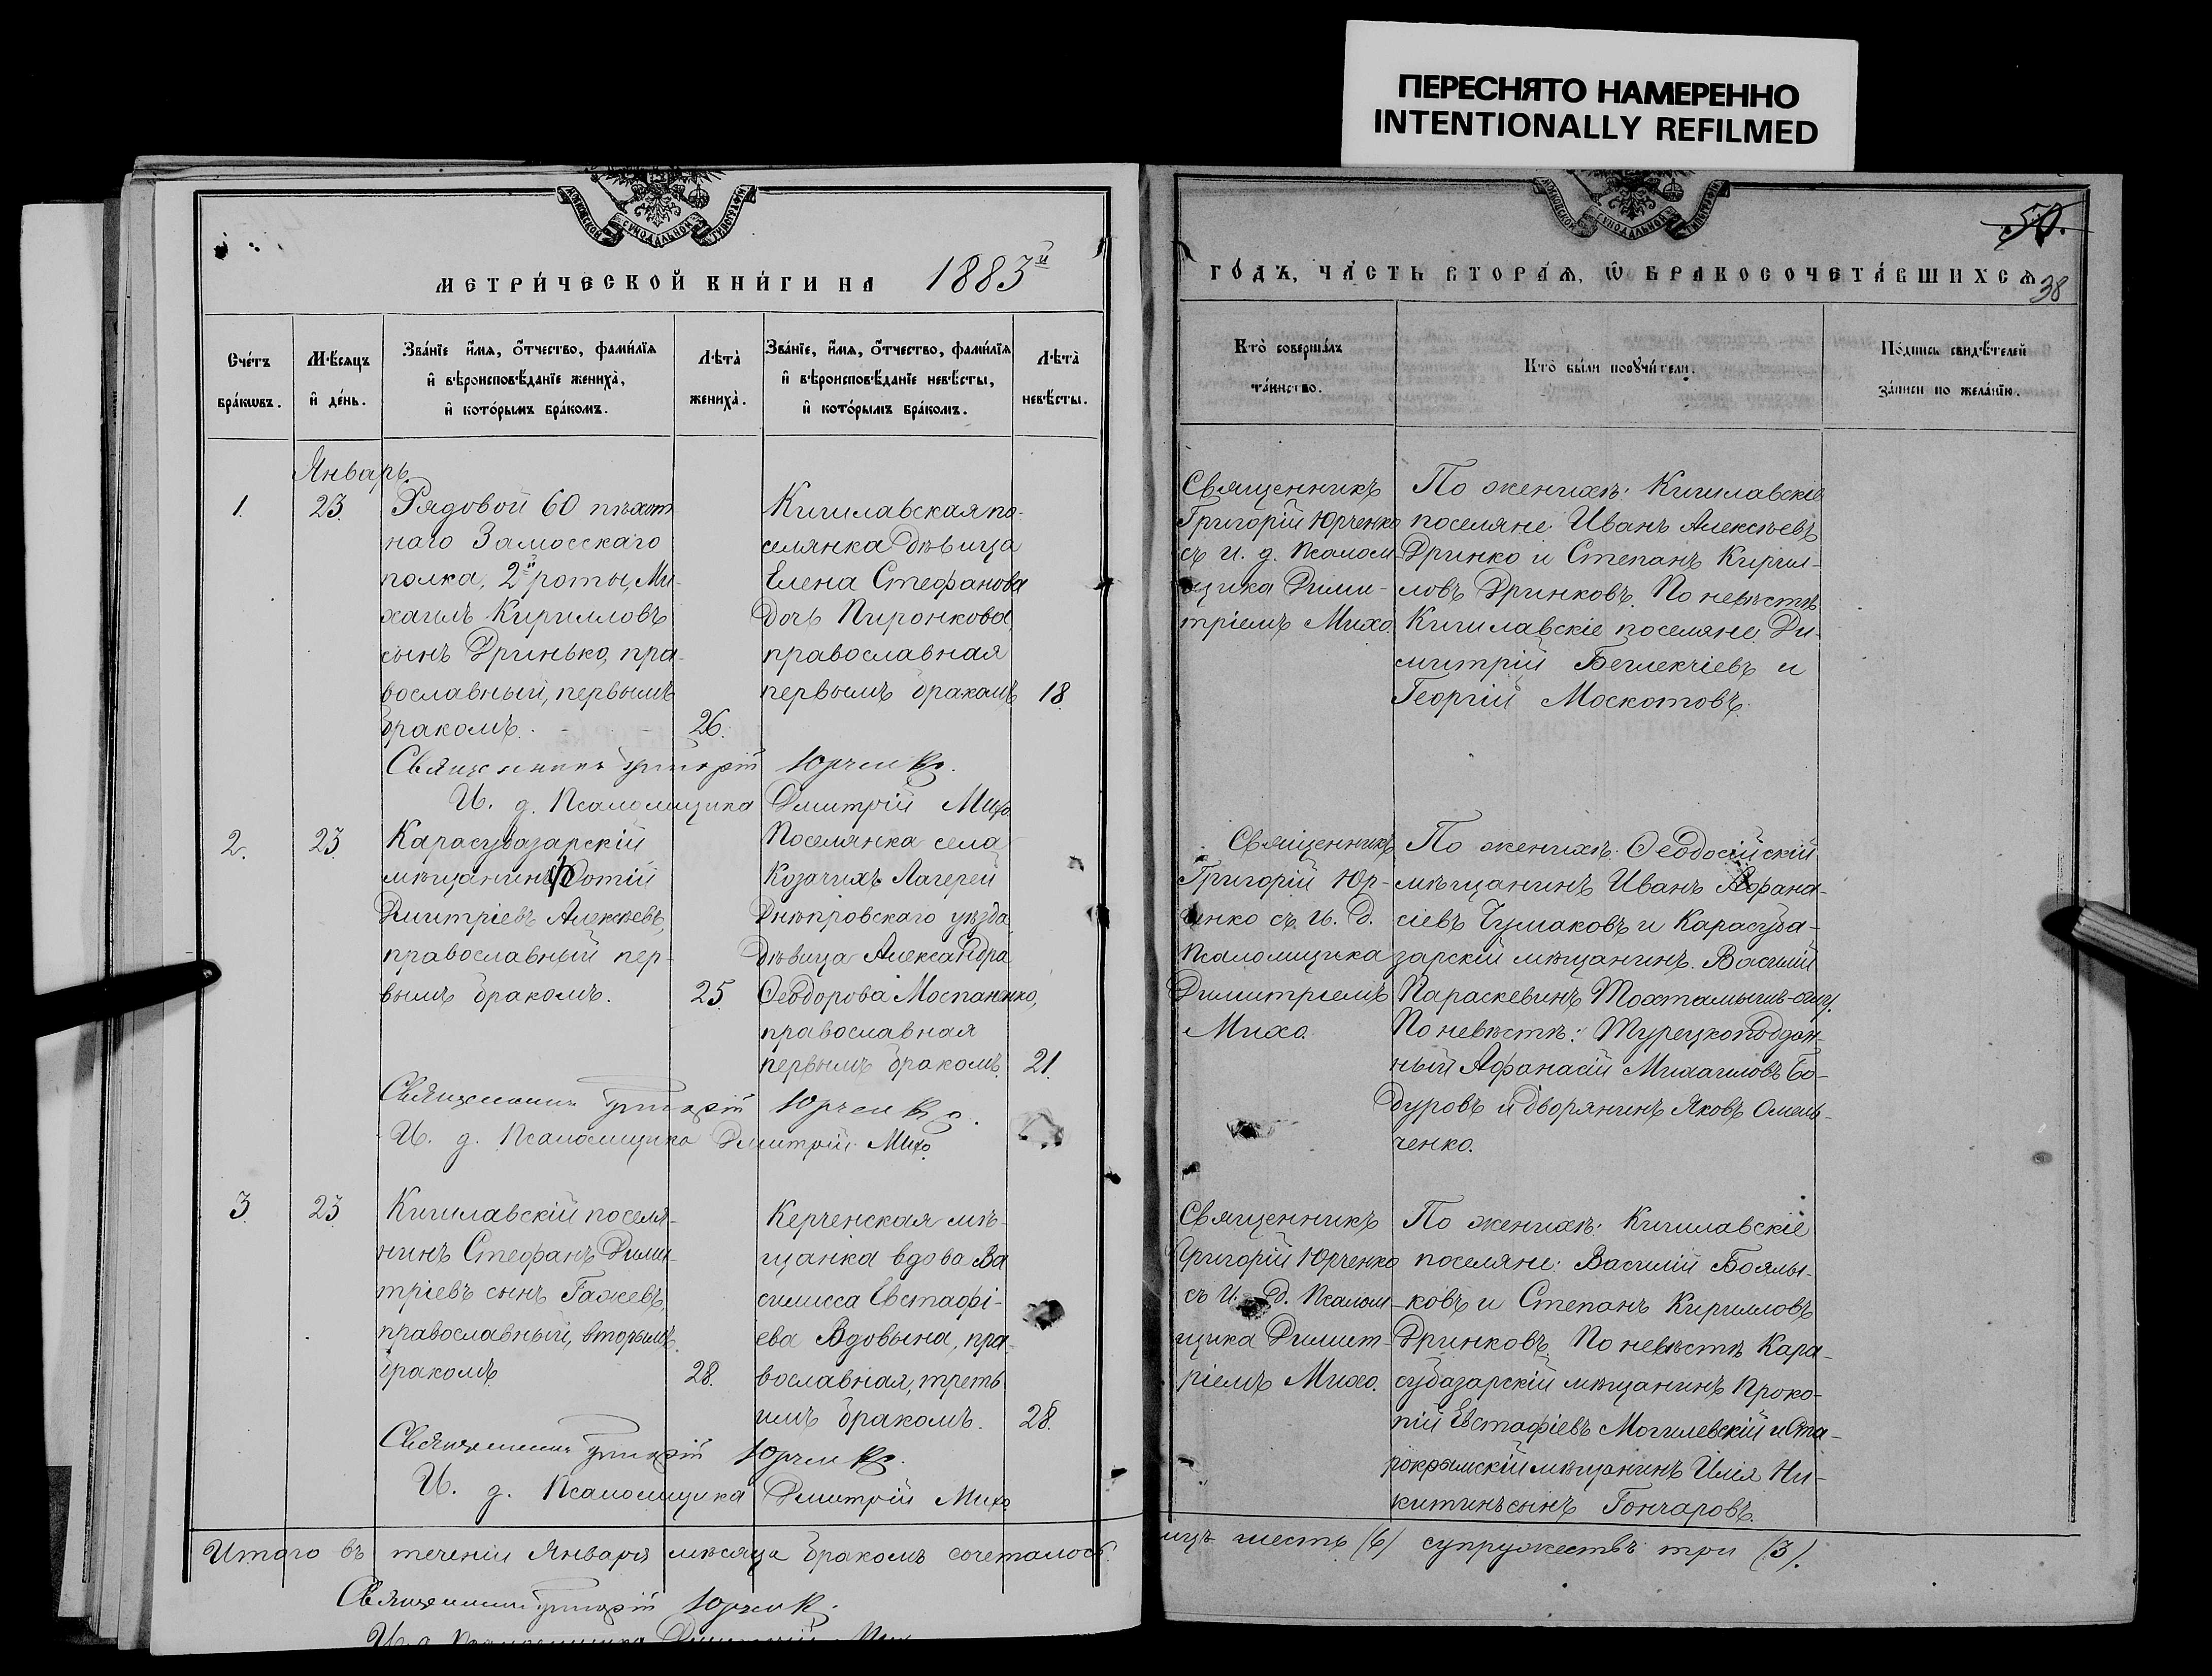 ПЕРЕСНЯТО НАМЕРЕННО
INTENTIONALLY REFILMED
МЕТРИ́ЧЕСКОЙ КНИ́ГИ НА 1883й
Сче́тъ бра́кѡвъ.
Мѣ́сяцъ и҆ де́нь.
Зва́нїе и҆́мѧ, ѻ҆́тчество, фами́лїѧ
и҆ вѣроисповѣ́данїе жениха̀,
и҆ кото́рымъ бра́комъ.
Лѣта̀ жениха̀.
Зва́нїе, и҆́мѧ, ѻ҆́тчество, фами́лїѧ
и҆ вѣроисповѣ́данїе невѣ́сты,
и҆ кото́рымъ бра́комъ.
Лѣта̀ невѣ́сты.
Январь
1.
23.
Рядовой 60 пѣхот
наго Замосскаго
полка, 2й роты, Ми-
хаилъ Кирилловъ
сынъ Дринько, пра-
вославный, первымъ
бракомъ.
26.
Кишлавская по-
селянка дѣвица
Елена Стефанова
дочь Пиронкова,
православная
первымъ бракомъ
18.
Священникъ Григорій Юрченко.
И. д. Псаломщика Дмитрій Михо
2.
23.
Карасубазарскій
мѣщанинъ Фотій
Дмитріевъ Алексѣевъ,
православный пер-
вымъ бракомъ.
25.
Поселянка села
Козачихъ Лагерей
Днѣпровскаго уѣзда
дѣвица Александра
Ѳеодорова Моспаненко,
православная
первымъ бракомъ.
21.
Священникъ Григорій Юрченко.
И. д. Псаломщика Дмитрій Михо
3.
23.
Кишлавскій поселя-
нинъ Стефанъ Дими-
тріевъ сынъ Гажевъ,
православный, вторымъ
бракомъ
28.
Керченская мѣ-
щанка вдова Ва
силисса Евстафі-
ева Вдовына, пра-
вославная, треть
имъ бракомъ.
28.
Священникъ Григорій Юрченко.
И. д. Псаломщика Дмитрій Михо
Итого въ теченіи Января мѣсяца бракомъ сочеталось
Священникъ Григорій Юрченко.
И. д. Псаломщика Дмитрій Михо
50.
ГО́ДЪ, ЧА́СТЬ ВТОРА́Ѧ, Ѡ҆ БРАКОСОЧЕТА́ВШИХСѦ
38
Кто̀ соверша́лъ
та́инство.
Кто̀ бы́ли порꙋчи́тели.
По́дписи свидѣ́телей
за́писи по жела́нїю.
Священникъ
Григорій Юрченко
съ и. д. Псалом
щика Дими-
тріемъ Михо.
По женихѣ: Кишлавскіе
поселяне: Иванъ Алексѣевъ
Дринко и Степанъ Кирил-
ловъ Дринковъ. По невѣстѣ
Кишлавскіе поселяне Ди-
митрій Беглекчіевъ и
Георгій Москотовъ.
Священникъ
Григорій Юр-
ченко съ И. Д.
Псаломщика
Димитріемъ
Михо.
По женихѣ: Ѳеодосійскій
мѣщанинъ Иванъ Афана-
сіевъ Чумаковъ и Карасуба-
зарскій мѣщанинъ Василій
Параскевинъ
По невѣстѣ: Турецкоподдан-
ный Афанасій Михаиловъ Бо-
дуровъ и дворянинъ Яковъ Омель-
ченко.
Священникъ
Григорій Юрченко
съ И. Д. Псалом-
щика Димит-
ріемъ Михо.
По женихѣ: Кишлавскіе
поселяне: Василій Боялы-
ковъ и Степанъ Кирилловъ
Дринковъ. По невѣстѣ Кара-
субазарскій мѣщанинъ Проко-
пій Евстафіевъ Могилевскій и Ста-
рокрымскій мѣщанинъ Илія Ни-
китинъ сынъ Гончаровъ.
лицъ шесть (6) супружествъ три (3).